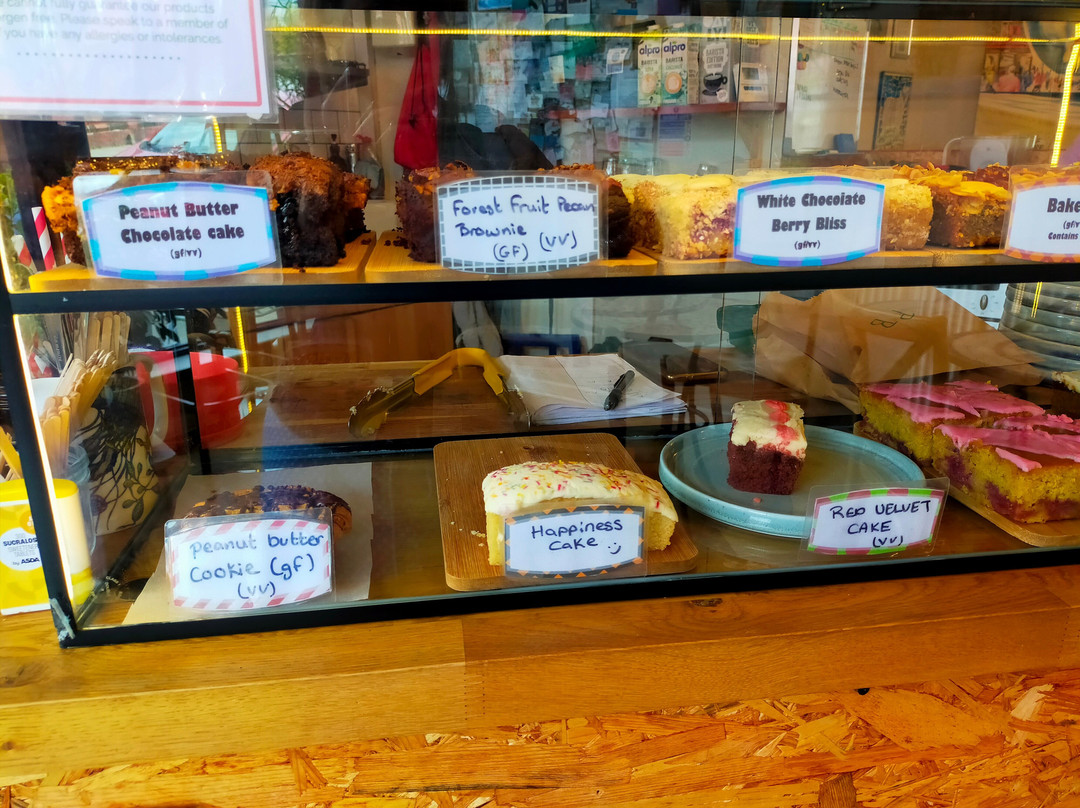 cannot fully guarantee our products
rgen free. Please speak to a member of
you have any allergies or intolerances.
alpro
alpro
Peanut Butter
Chocolate cake
(gf/vv)
Forest Fruit Pecan
Brownie
(GF) (VV)
White Chocolate
Berry Bliss
(gf/vv)
Bake
Contains
peanut butter
Cookie (gf)
(vv)
Happiness
Cake :)
RED VELVET
CAKE
(VV)
SUCRALOSE
by ASDA